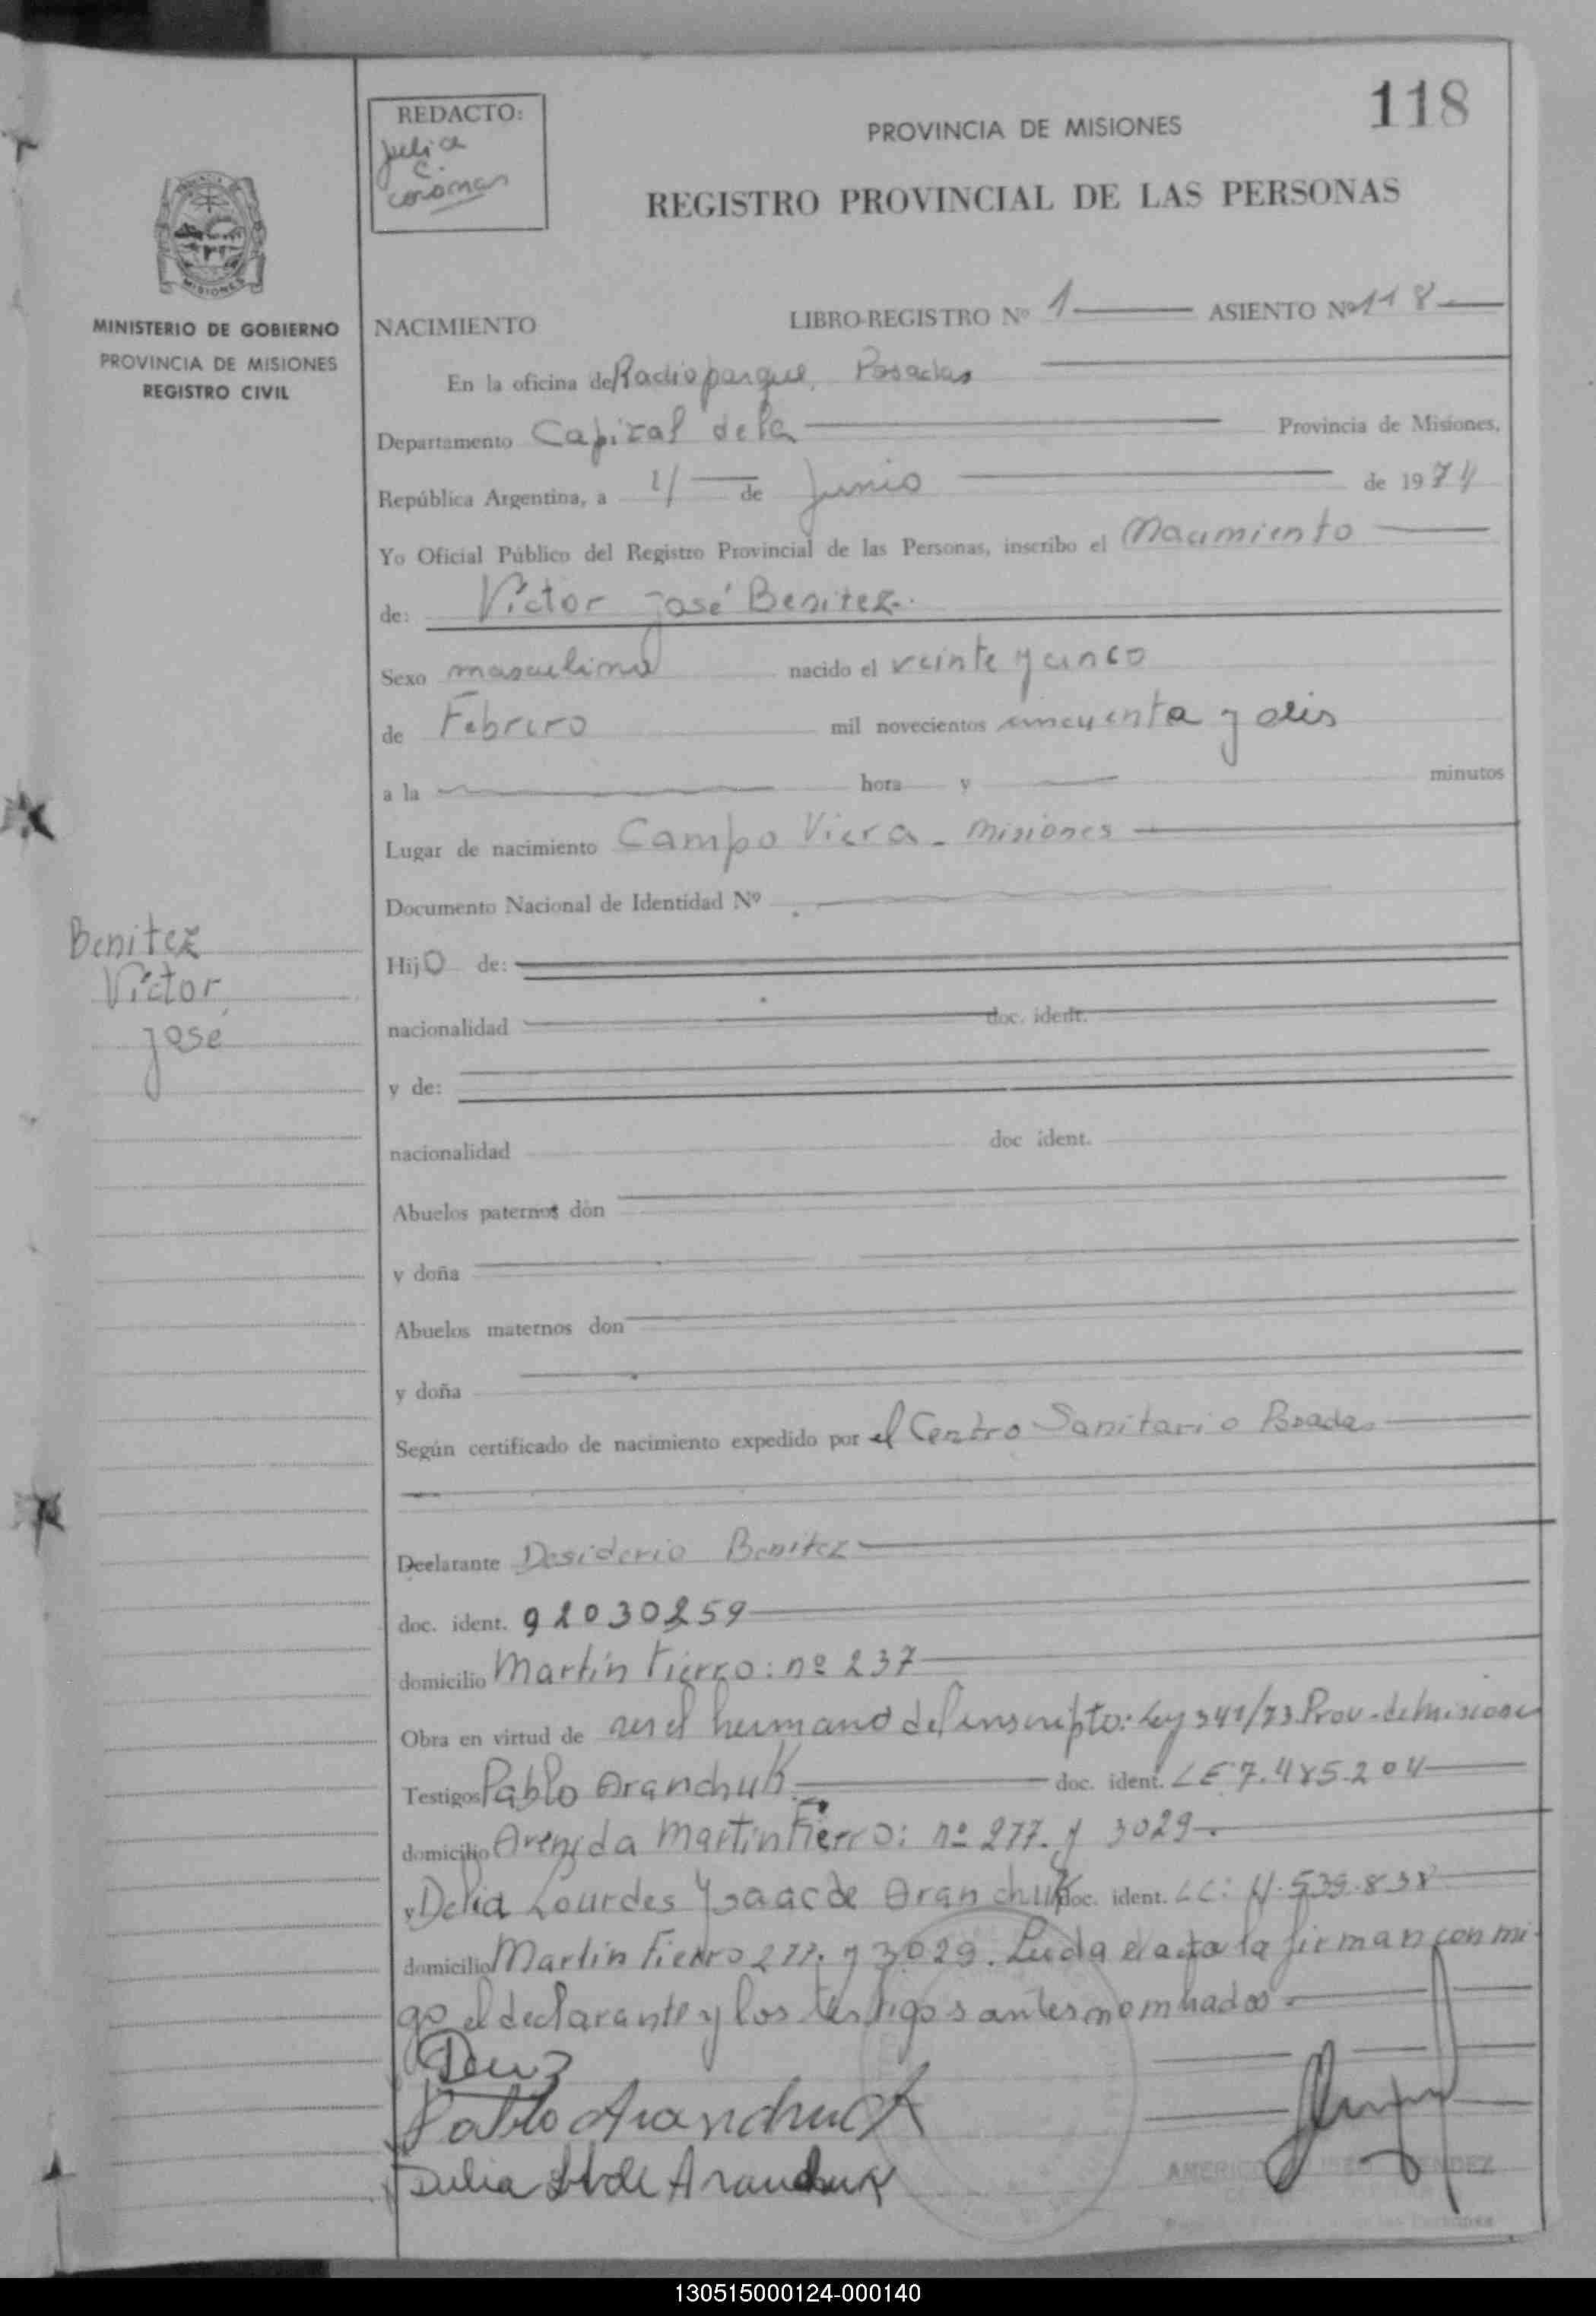 118
REDACTO:
Julia
C.
Coroman
PROVINCIA DE MISIONES
REGISTRO PROVINCIAL DE LAS PERSONAS
MISIONES
MINISTERIO DE GOBIERNO
PROVINCIA DE MISIONES
REGISTRO CIVIL
NACIMIENTO LIBRO-REGISTRO Nº 1 ASIENTO Nº 118
En la oficina de Radioparque, Posadas
Departamento Capital de la Provincia de Misiones,
República Argentina, a 4 de Junio de 1974
Yo Oficial Público del Registro Provincial de las Personas, inscribo el Nacimiento
de: Víctor José Benitez.
Sexo masculino nacido el veinte y cinco
de Febrero mil novecientos cincuenta y
a la hora y minutos
Lugar de nacimiento Campo Viera - Misiones
Documento Nacional de Identidad Nº
Benitez
Víctor
José
Hijo de:
nacionalidad doc. ident.
y de:
nacionalidad doc ident.
Abuelos paternos don
y doña
Abuelos maternos don
y doña
Según certificado de nacimiento expedido por el Centro Sanitario Posadas
Declarante Desiderio Benitez
doc. ident. 92030259
domicilio Martín Fierro: nº 237
Obra en virtud de ser el hermano del inscripto: Ley 341/73 Prov. de Misiones
Testigos Pablo Aranchuk doc. ident. LE 7.485.204
domicilio Avenida Martin Fierro: nº 277. y 3029.
y Delia Lourdes Ysaac de Aranchuk doc. ident. LC: 4.539.838
domicilio Martin Fierro 277. y 3029. Leida el acta la firman conmi-
go el declarante y los testigos antes nombrados.
Pablo Aranchuk
Delia de Aranchuk
AMERICO
130515000124-000140